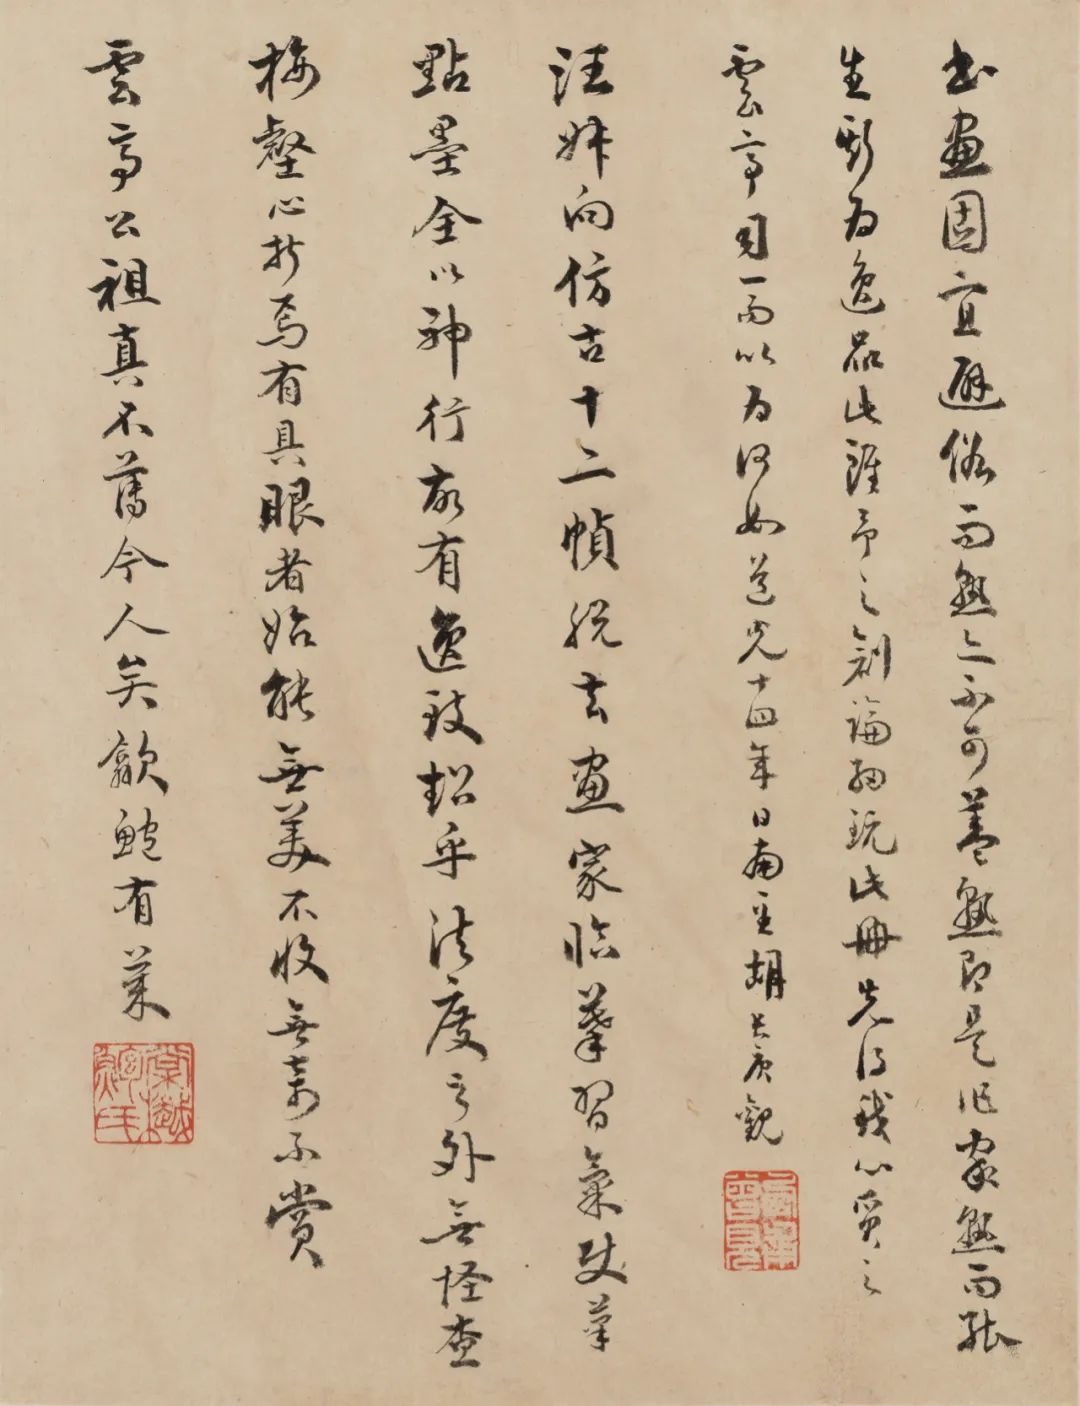 書畫固宜避俗而熟亦不可蓋熟即是作家熟而能
生斯為逸品此雖予之創論細玩此冊先得我心質之
雲亭司一而以為何如道光十四年日南至胡長庚觀
汪妹向仿古十二幀脫去畫家臨摹習氣使筆
點墨全以神行故有逸致超乎法度之外無怪查
梅壑心折焉有具眼者始能無美不收無奇不賞
雲亭公祖真不薄今人矣歙鮑有萊